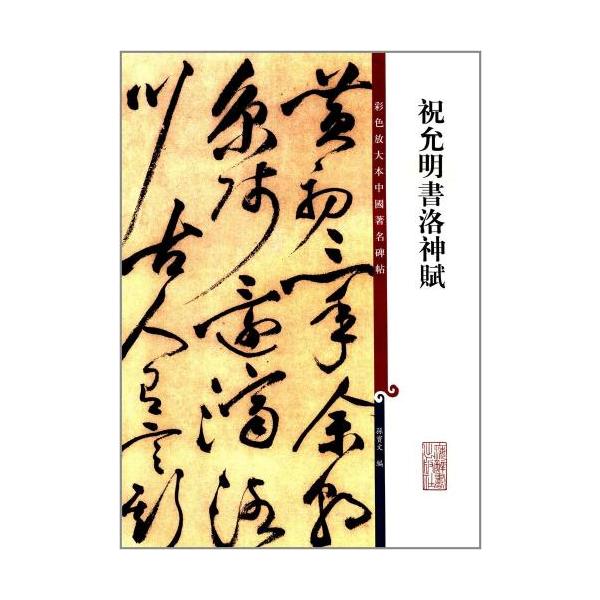 祝允明書洛神賦
彩色放大本中國著名碑帖
孫寶文 編
黃初三年余朝
京師還濟洛
川古人有言斯